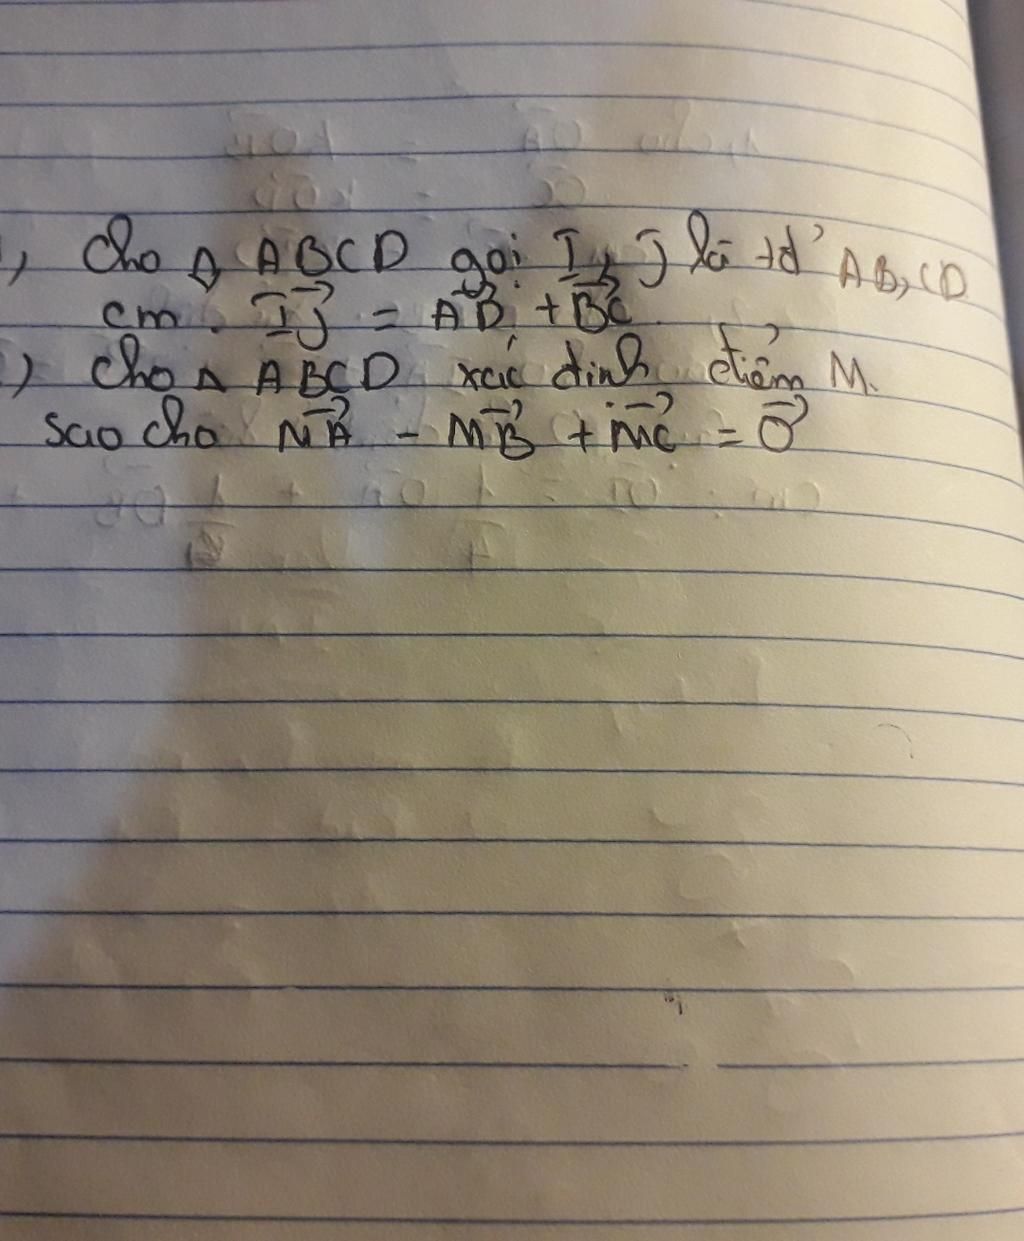 , Cho Δ ABCD gọi I, J là tđ' AB, CD
cm . IJ = AD + BC
) Cho Δ ABCD xác định điểm M.
sao cho MA - MB + MC = O